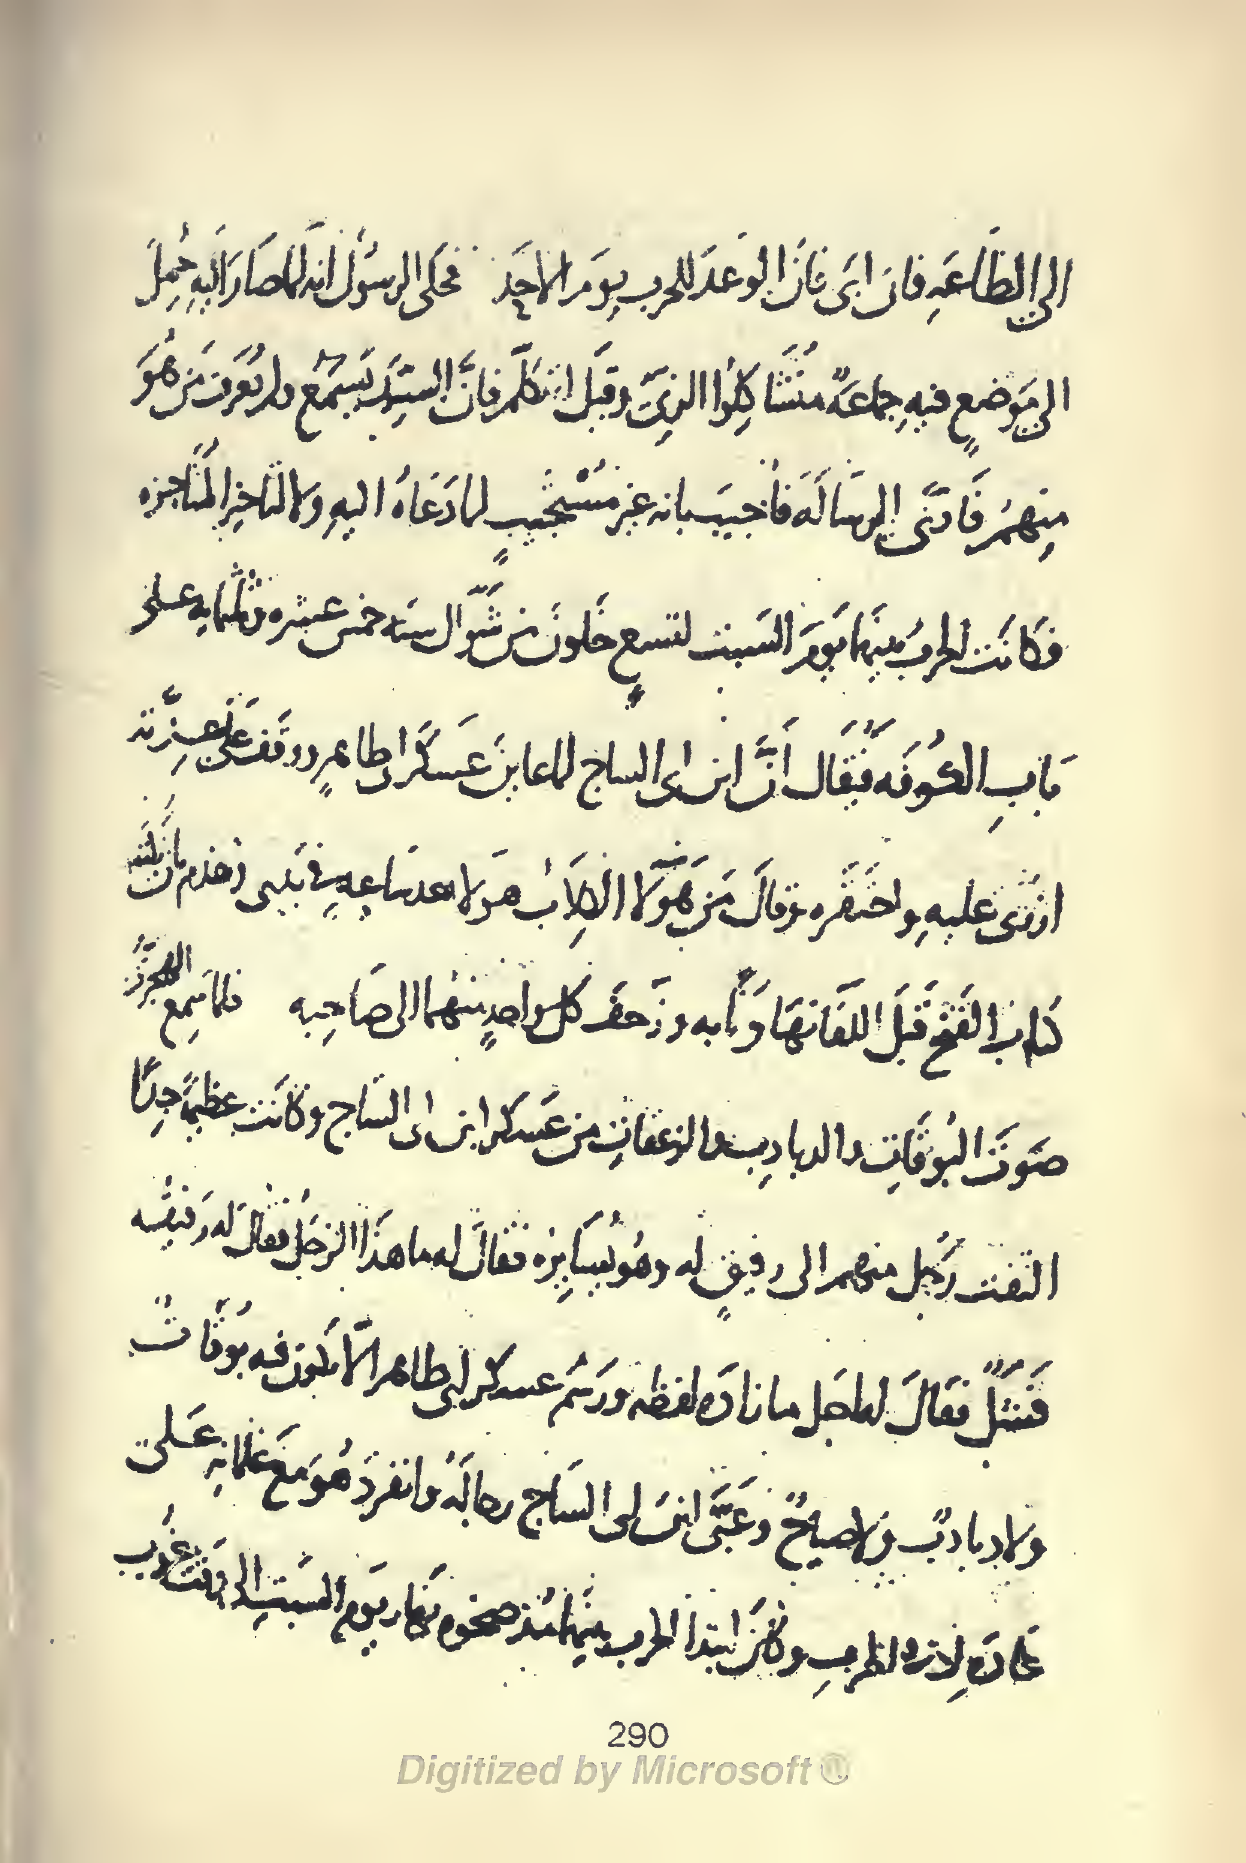 الى الطَّاعَهِ فان ابَى فانَ الوعدَ للحرب يومَ الاحَد فحكى الرسُول انه لما صَارَ اليهِ حُمِلَ
الى مَوضعٍ فيهِ جماعَهٌ متشاكلوا الزىّ وقيل له تكلّم فانَّ السيّدَ يَسمَع ولم يعرف مَن هُوَ
منهمُ فَادّى الرسَالَه فاُجيبَ بانه غير مُسْتجيبٍ لما دَعَاهُ اليهِ ولا لتاخير المُناجزه
فكانَت الحربُ بينهما يومَ السَبت لتسعٍ خَلَونَ من شَوّال سنه خمس عشره وثلثمايه على
بَابِ الكُوفَه فيُقَال انَّ ابن ابى الساج لما عاينَ عَسكَر ابى طاهرٍ ووقفَ على عِدّته
ازرى عليهِ واحتَقَره وقالَ مَن هَؤلَا الكِلَابُ هَولا بعد سَاعهٍ فى يَدِى وتقدم بان يُكتَب
كتاب الفَتح قَبلَ اللقَا تهَاوناً به وزَحفَ كل واحدٍ منهُما الى صَاحِبه فلما سَمِعَ الهَجَرِيُّ
صَوتَ البُوقَاتِ والدبادِب والزعقاتِ من عَسكر ابن ابى السَاج وكانَت عظيمَةً جِدّاً
التفت رَجُل منهم الى رفيقٍ له وهُو يُسَايِره فقالَ له ما هَذا الزجَلُ فقالَ له رَفيقُه
فَشَلٌ فقالَ له اجَل ما زادَه لفظه ورَسْم عسكر ابى طاهر الّا يكون فيه بُوقَاتٌ
ولا دبادبُ ولا صياحٌ وعَبَّى ابنُ ابى السَاج رجالَهُ وانفردَ هُوَ مَع غلمانِه عَلى
عَادَه لِه فى الحربِ وكانَ ابتدا الحرب بينهما منذ ضحوه نهار يَوم السَبتِ الى وقت غرُوب
290
Digitized by Microsoft ®